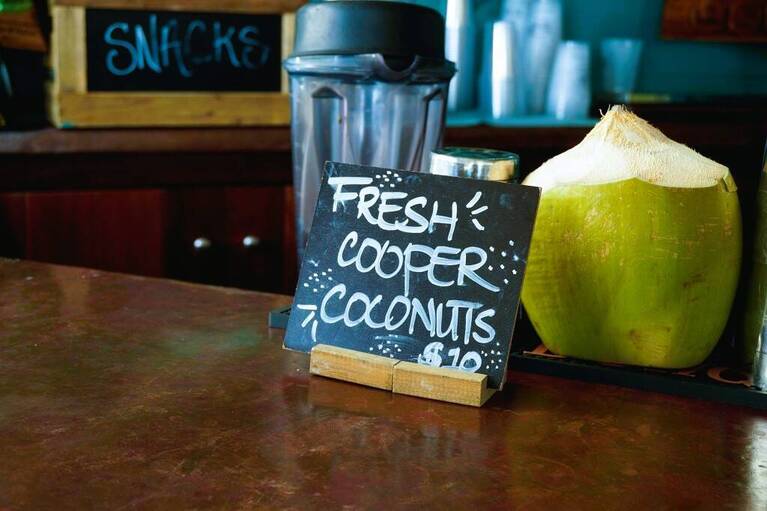 SNACKS
FRESH
COOPER
COCONUTS
$10